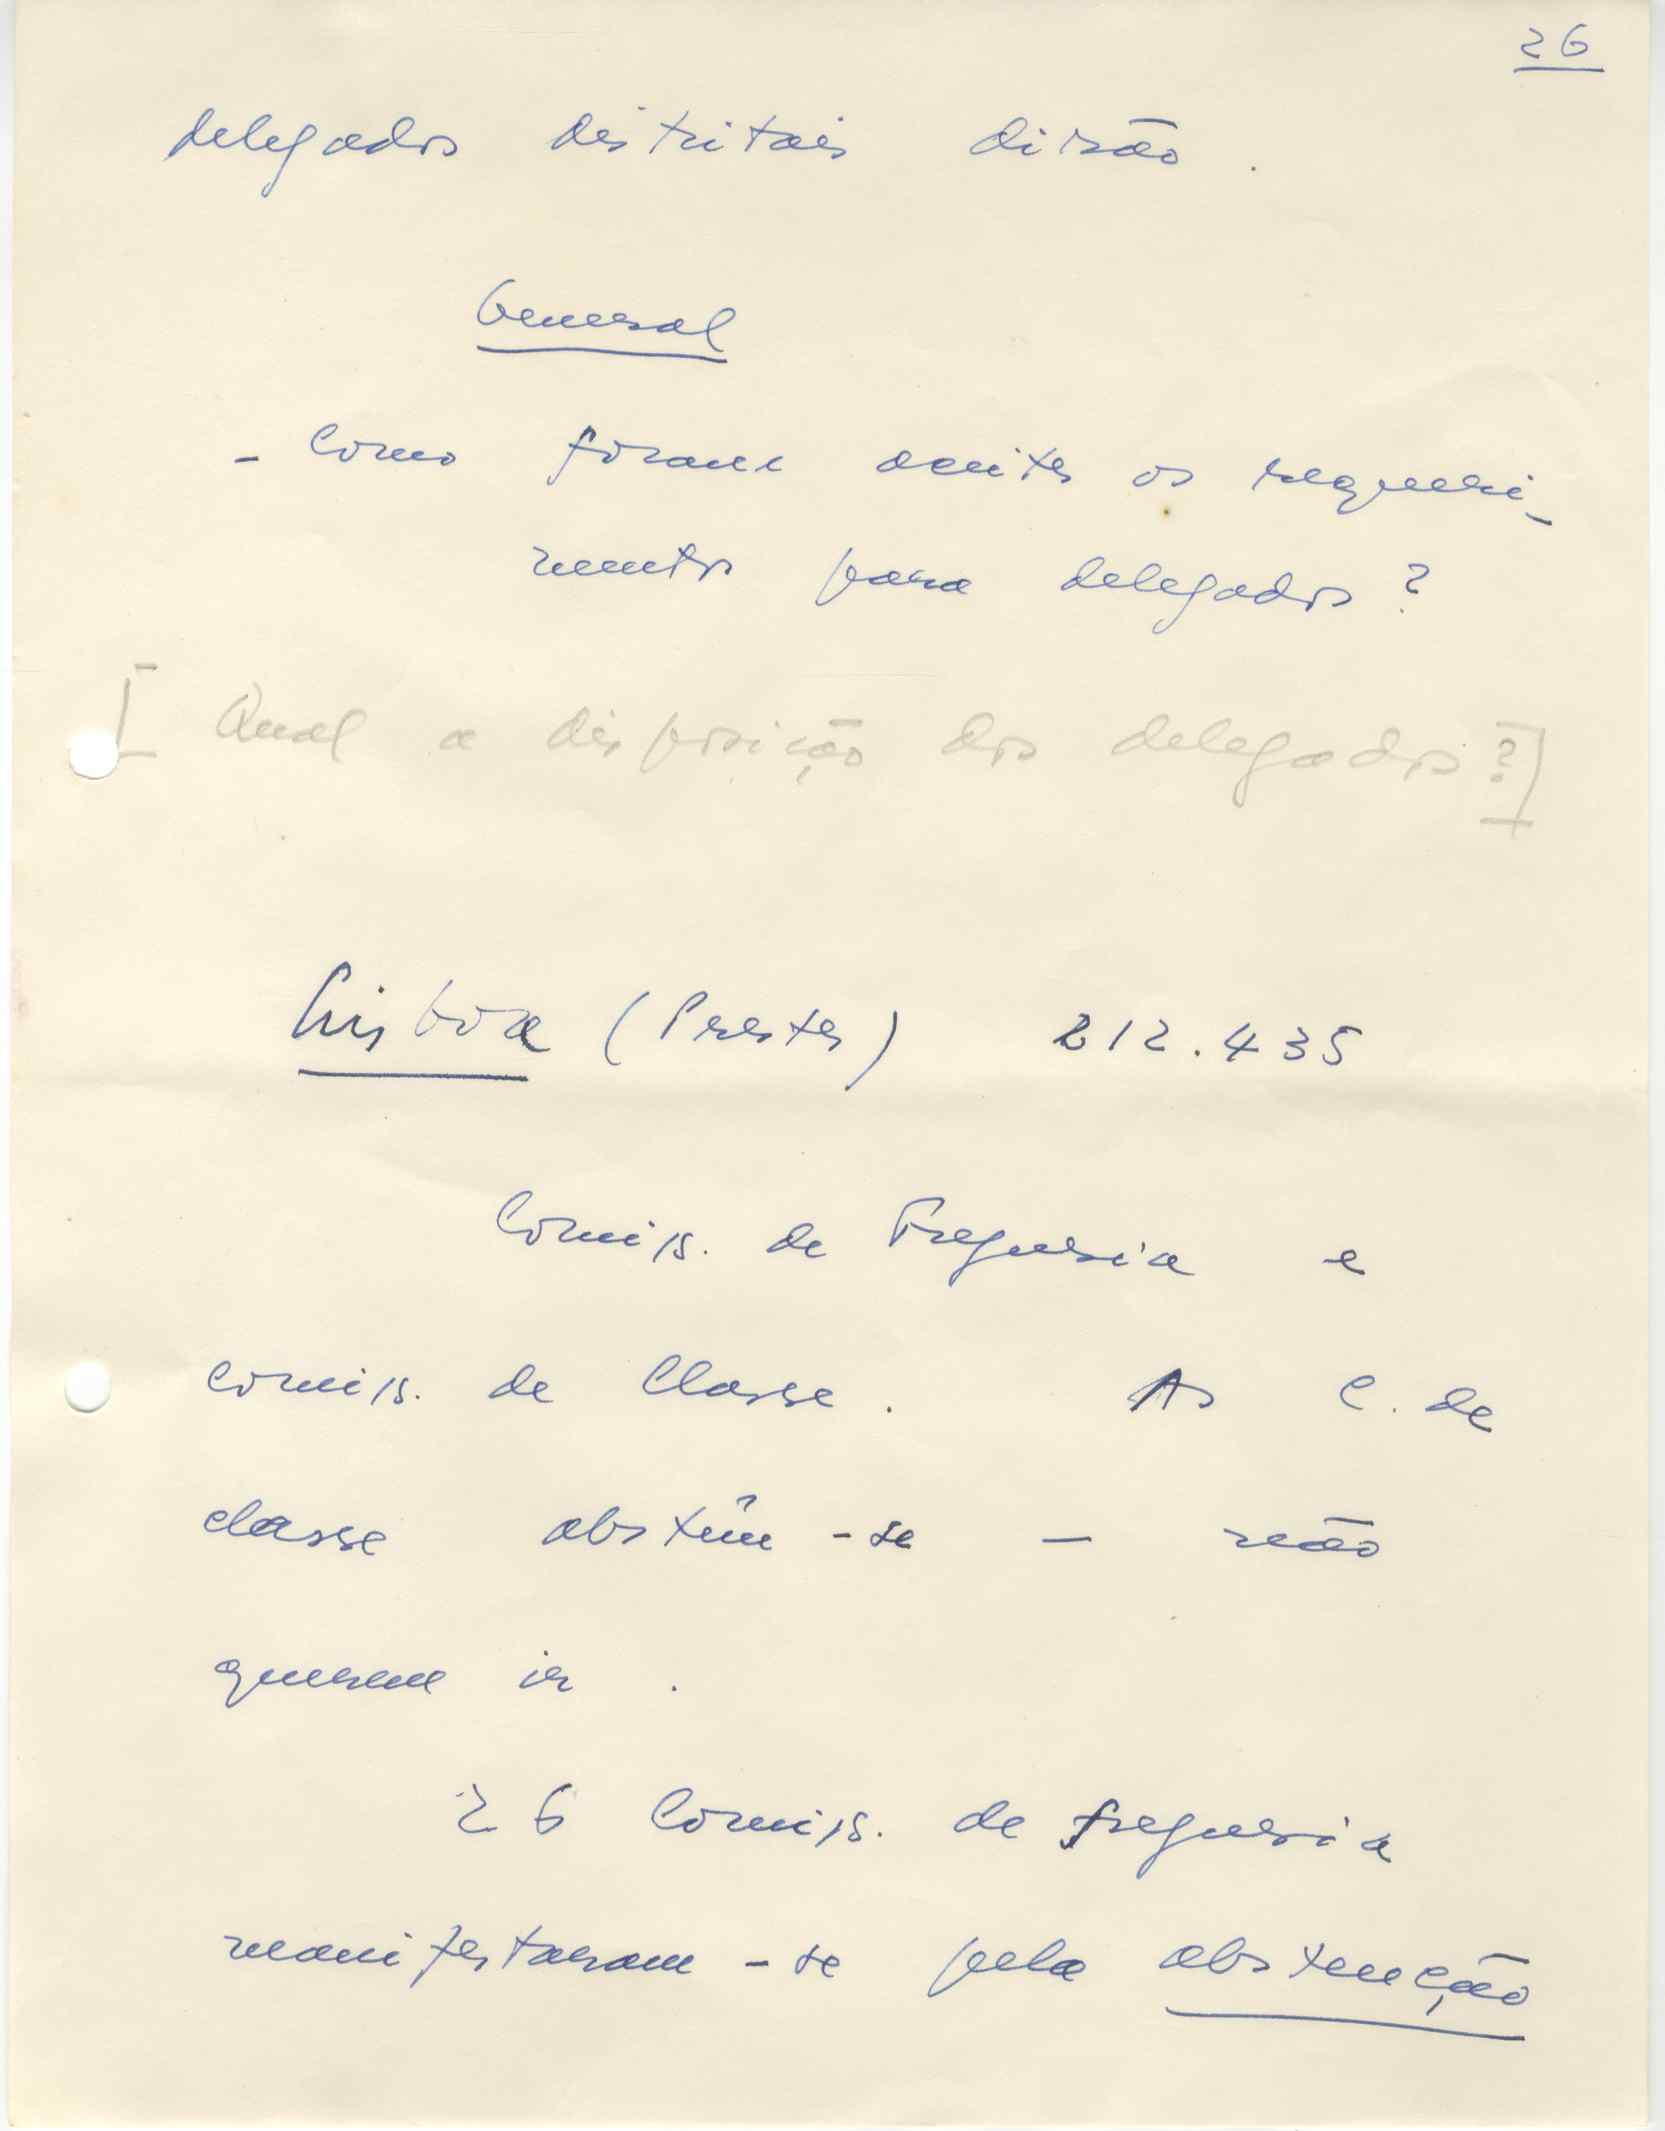 26
delegados distritais dirão.
General
- Como foram aceites os requeri-
mentos para delegados?
[Qual a disposição dos delegados?]
Lisboa (Prestes) 212.435
Comis. de Freguesia e
comis. de Classe. As C. de
classe abstêm-se - não
querem ir.
26 Comis. de freguesia
manifestaram-se pela abstenção